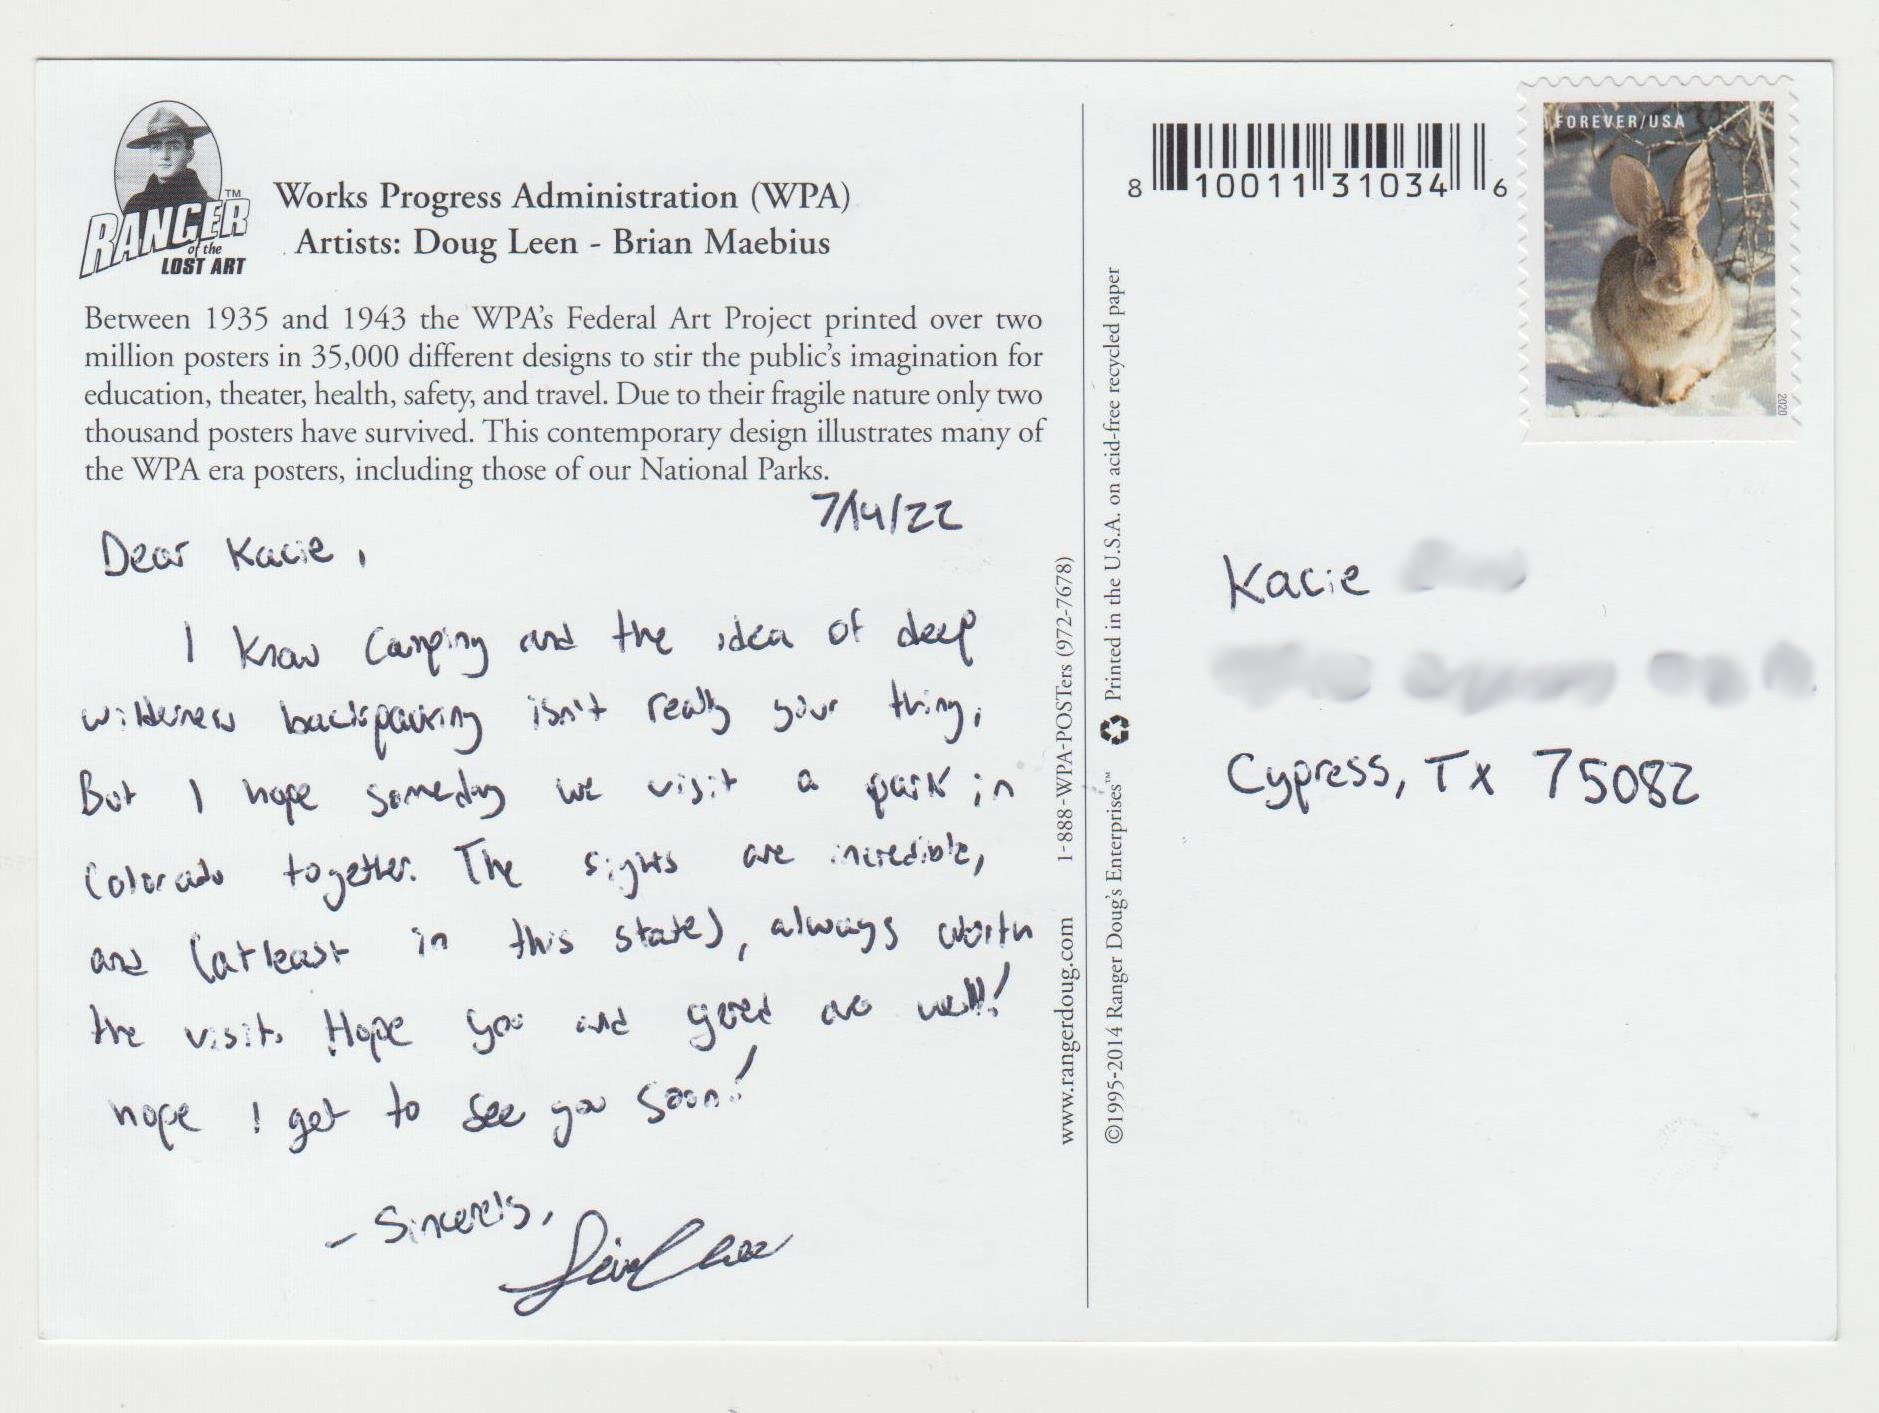 RANGER™
of the
LOST ART
Works Progress Administration (WPA)
Artists: Doug Leen - Brian Maebius
Between 1935 and 1943 the WPA's Federal Art Project printed over two
million posters in 35,000 different designs to stir the public's imagination for
education, theater, health, safety, and travel. Due to their fragile nature only two
thousand posters have survived. This contemporary design illustrates many of
the WPA era posters, including those of our National Parks.
7/14/22
Dear Kacie,
I know camping and the idea of deep
wilderness backpacking isn't really your thing,
But I hope someday we visit a park in
Colorado together. The sights are incredible,
and (atleast in this state), always worth
the visit. Hope you and are well!
hope I get to see you soon!
- Sincerely,
www.rangerdoug.com 1-888-WPA-POSTers (972-7678)
©1995-2014 Ranger Doug's Enterprises™ Printed in the U.S.A. on acid-free recycled paper
8 10011 31034 6
FOREVER/USA
2020
Kacie
Cypress, Tx 75082